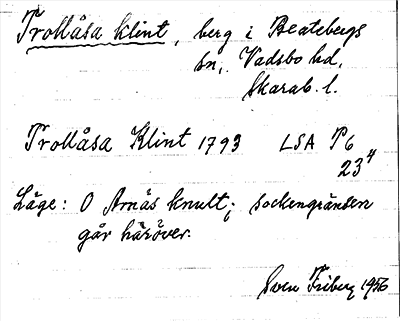 Trollåsa klint, berg i Beatebergs
sn, Vadsbo hd,
Skarab. l.
Trollåsa Klint 1793 LSA P6
23⁴
Läge: O Arnäs knult; sockengränsen
går häröver.
Sven Friberg 1956